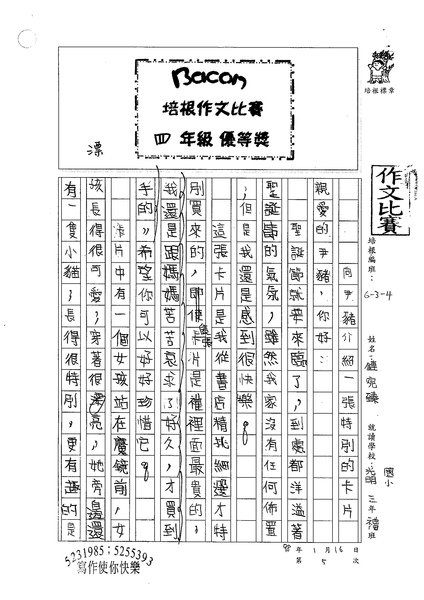 Bacon
培根作文比賽
四 年級 優等獎
漂
培根標章
作文比賽
培根編班：6-3-4
姓名：鍾宛臻
就讀學校：光明國小 三年 禮班
向尹豬介紹一張特別的卡片
親愛的尹豬，你好：
聖誕節就要來臨了，到處都洋溢著
聖誕節的氣氛，雖然我家沒有任何佈置
，但是我還是感到很快樂。
這張卡片是我從書店精挑細選才特
別買來的，即使這張卡片是裡面最貴的，
我還是跟媽媽苦苦哀求了好久，才買到
手的，希望你可以好好珍惜它。
卡片中有一個女孩站在魔鏡前，女
孩長得很可愛，穿著很漂亮，她旁邊還
有一隻小貓，長得很特別，更有趣的是
98年1月16日
第5次
5231985；5255393
寫作使你快樂